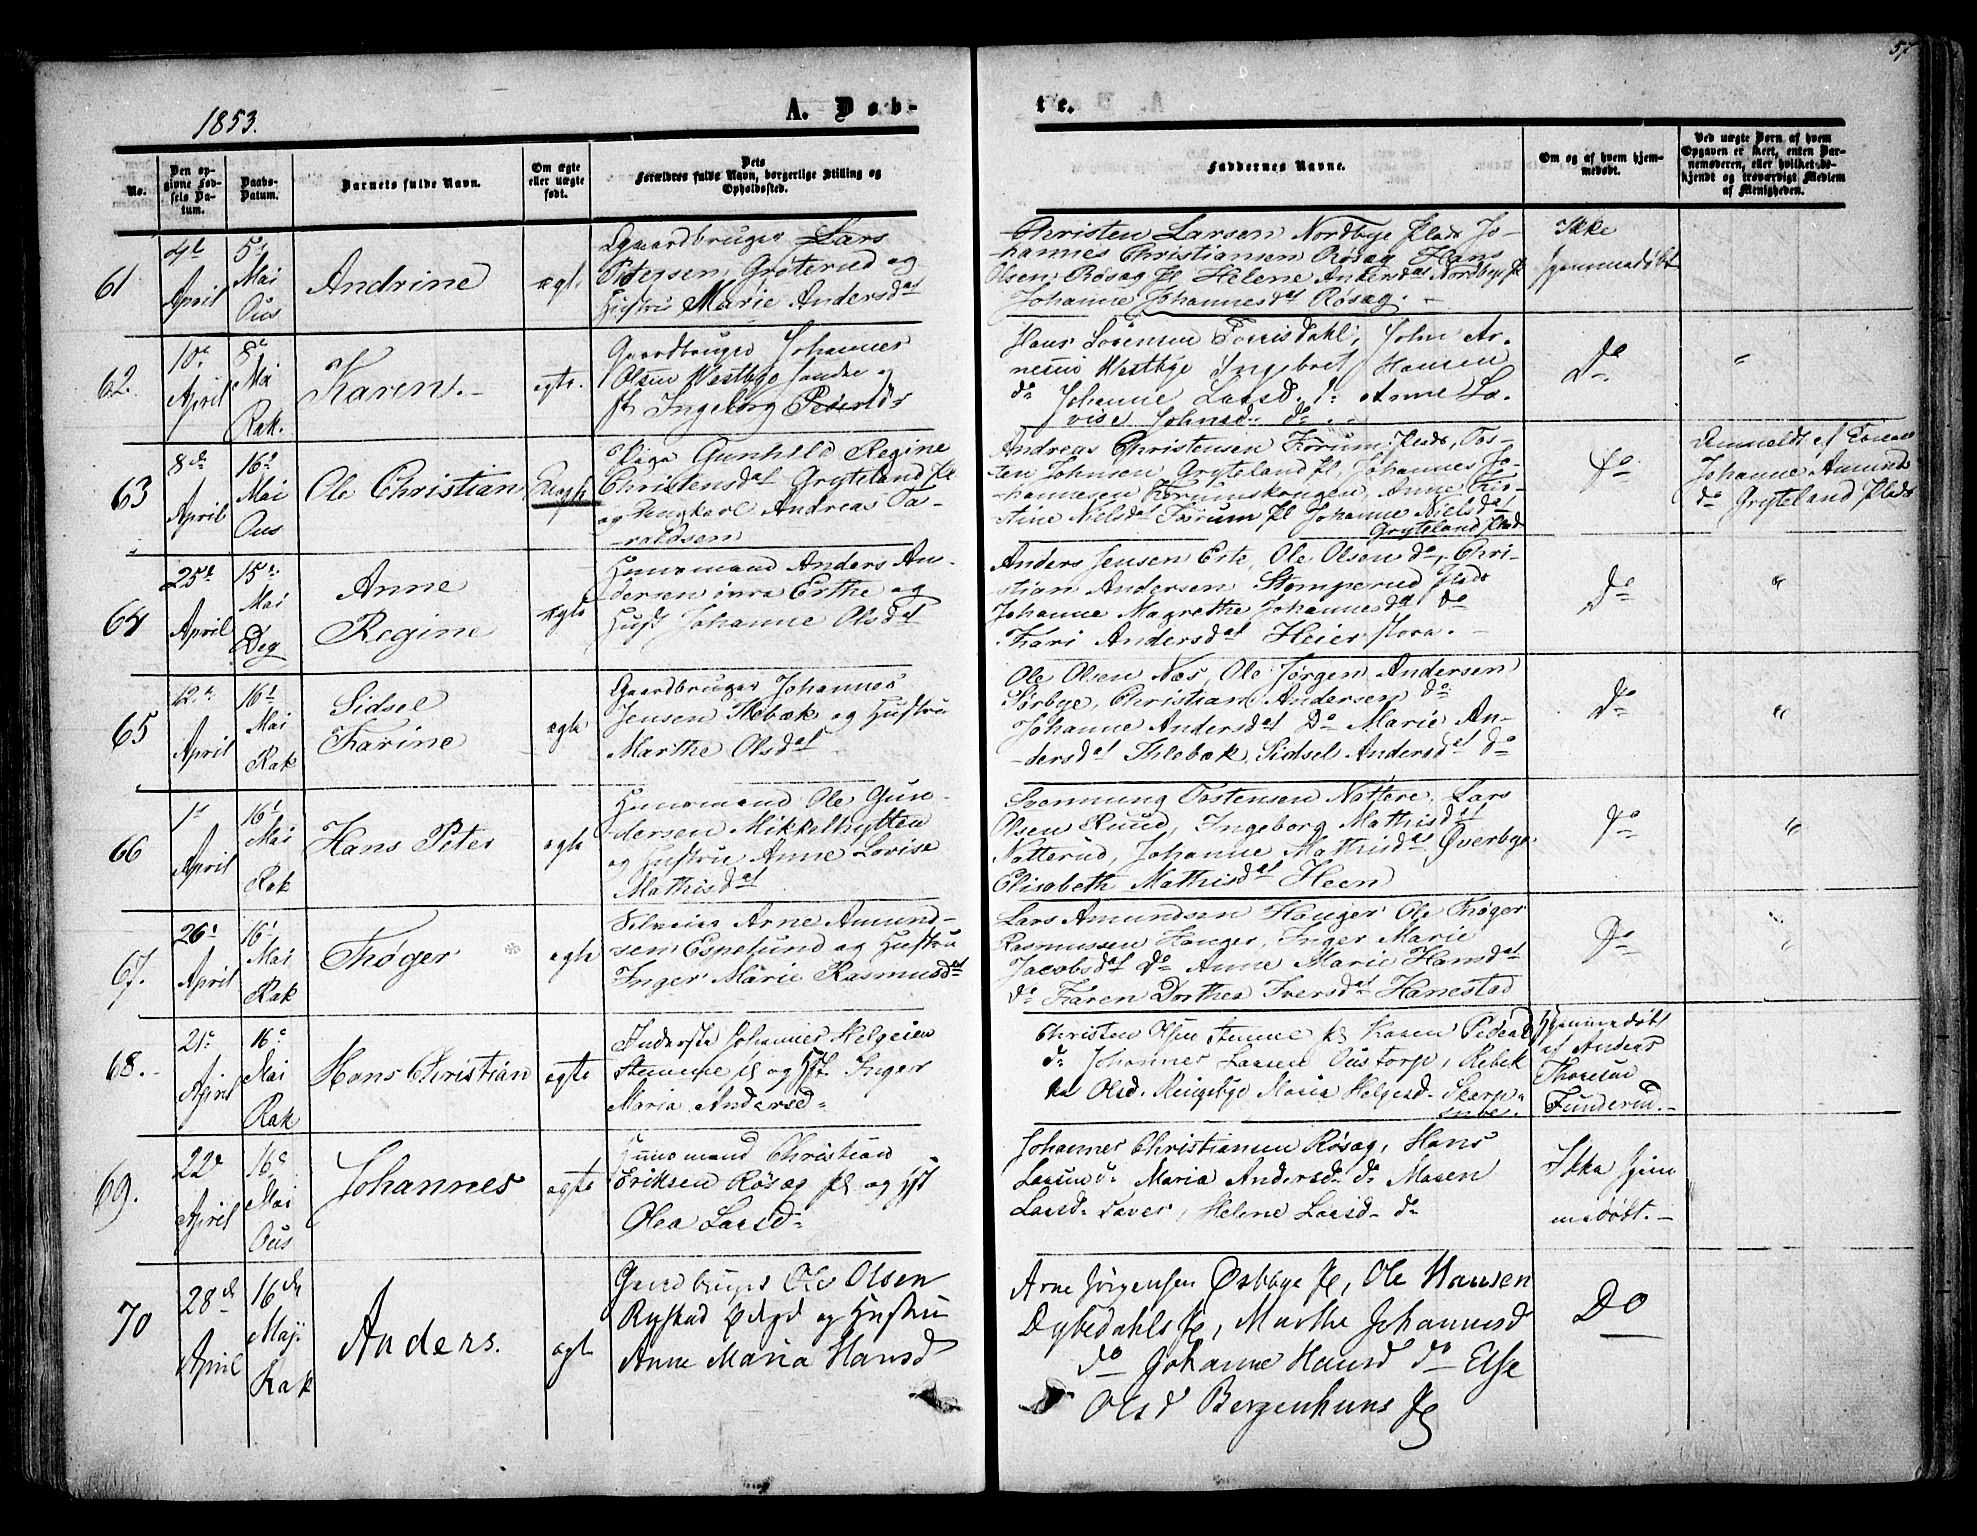 57
1853.
A. Døb-
te.
No.
Den op-
givne Fød-
sels Da-
tum.
Daabs-
Datum.
Barnets fulde Navn.
Om ægte
eller uægte
født.
Dets
Forældres fulde Navn, borgerlige Stilling og
Opholdssted.
Faddernes Navne.
Om og af hvem hjem-
medøbt.
Ved uægte Børn af hvem
Opgaven er skeet, enten Bar-
nemoderen, eller hvilket be-
kjendt og troværdigt Medlem
af Menigheden.
61
4de
April
5te
Mai
Ous
Andrine
ægte
Gaardbruger Lars
Petersen, Grøterud og
Hustru Marie Andersdat
Christen Larsen Nordbye plads Jo-
hannes Christiansen Røsag Hans
Olsen Røsag pl Helene Andersdat Nordbye pl
Johanne Johannesdat Røsag. -
Ikke
hjemmedøbt
62.
10de
April
8de
Mai
Rak.
Karen. -
egte.
Gaardbruger Johannes
Olsen Westbye søndre og
Ingeborg Pedersdr
Hans Sørensen Torrisdahl, John Ar-
nesen Westbye Ingebret Hansen
do Johanne Larsd. do Anne Lo-
vise Johnsd. do. -
Do
"
63
8de
April
16de
Mai
Ous
Ole Christian
Uægte
Pige Gunhild Regine
Christensdat Gryteland pl
og Ungkarl Andreas Ta-
raldsen
Andreas Christensen Korum plads, Tos-
ten Johnsen, Gryteland pl, Johannes Jo-
hannesen Korumskrogen, Anne Kir-
stine Nielsdat Korum pl Johanne Nielsdat
Gryteland plads
Do
Anmeldt af Konen
Johanne Amunds
do Gryteland plads
64
25de
April
15de
Mai
Deg
Anne
Regine
ægte
Huusmand Anders An-
dersen Erthe og
Hust Johanne Olsdat
Anders Jensen Erte, Ole Olsen do, Chri-
stian Andersen Stomperud plads
Johanne Magrethe Johannesdat do
Kari Andersdat Heier store. -
Do
"
65
12te
April
16de
Mai
Rak
Sidsel
Karine
ægte
Gaardbruger Johannes
Jensen Ilebæk og Hustru
Marthe Olsdat
Ole Olsen Næs, Ole Jørgen Andersen
Sørbye, Christian Andersen do
Johanne Andersdat Do Marie An-
dersdat Ihlebæk, Sidsel Andersdat do
Do
"
66
1ste
April
16de
Mai
Rak
Hans Peter
egte
Huusmand Ole Gun-
dersen Mikkelhytten
og Hustru Anne Lovise
Mathisdat
Svennung Tostensen Nattere, Lars
Olsen Ruud, Ingeborg Mathisdat
Natterud, Johanne Mathisdat Øverbye
Elisabeth Mathisdat Heen
Do
"
67.
26de
April
16de
Mai
Rak
Thøger
egte
Selveier Arne Amund-
sen Espelund og Hustru
Inger Marie Rasmusdat
Lars Amundsen Hauger Ole Thøger
Rasmussen Hauger, Inger Marie
Jacobsdat do Anne Marie Hansdat
do Karen Dorthea Iversdat Hanestad
Do
"
68. -
21de
April
16de
Mai
Rak
Hans Christian
ægte
Inderste Johannes Helgesen
Stumme pl og Hst. Inger
Maria Andersd.
Christen Stumme pl Karen Pedersd
do Johannes Larsen Oustorp, Rebek
ka Olsd. Maria Helgesd.
Hjemmedøbt
af Anders
Thoresen
Funderud. -
69.
22de
April
16de
Mai
Ous
Johannes
ægte
Huusmand Christian
Eriksen Røsag pl og Hst
Olea Larsd.
Johannes Christiansen Røsag, Hans
Larsen do Maria Andersd. do Maren
Larsd. Taver, Helene Larsd. do
Ikke hjem
medøbt. -
70
28de
April
16de
Maji
Rak
Anders.
ægte
Gaardbruger Ole Olsen
Rystad ødegd og Hustru
Anne Maria Hansd
Arne Jörgensen Östbye pl, Ole Hansen
Dybedahls pl, Marthe Johannesd
do Johanne Hansd do Else
Olsd Bergenhuus pl
Do